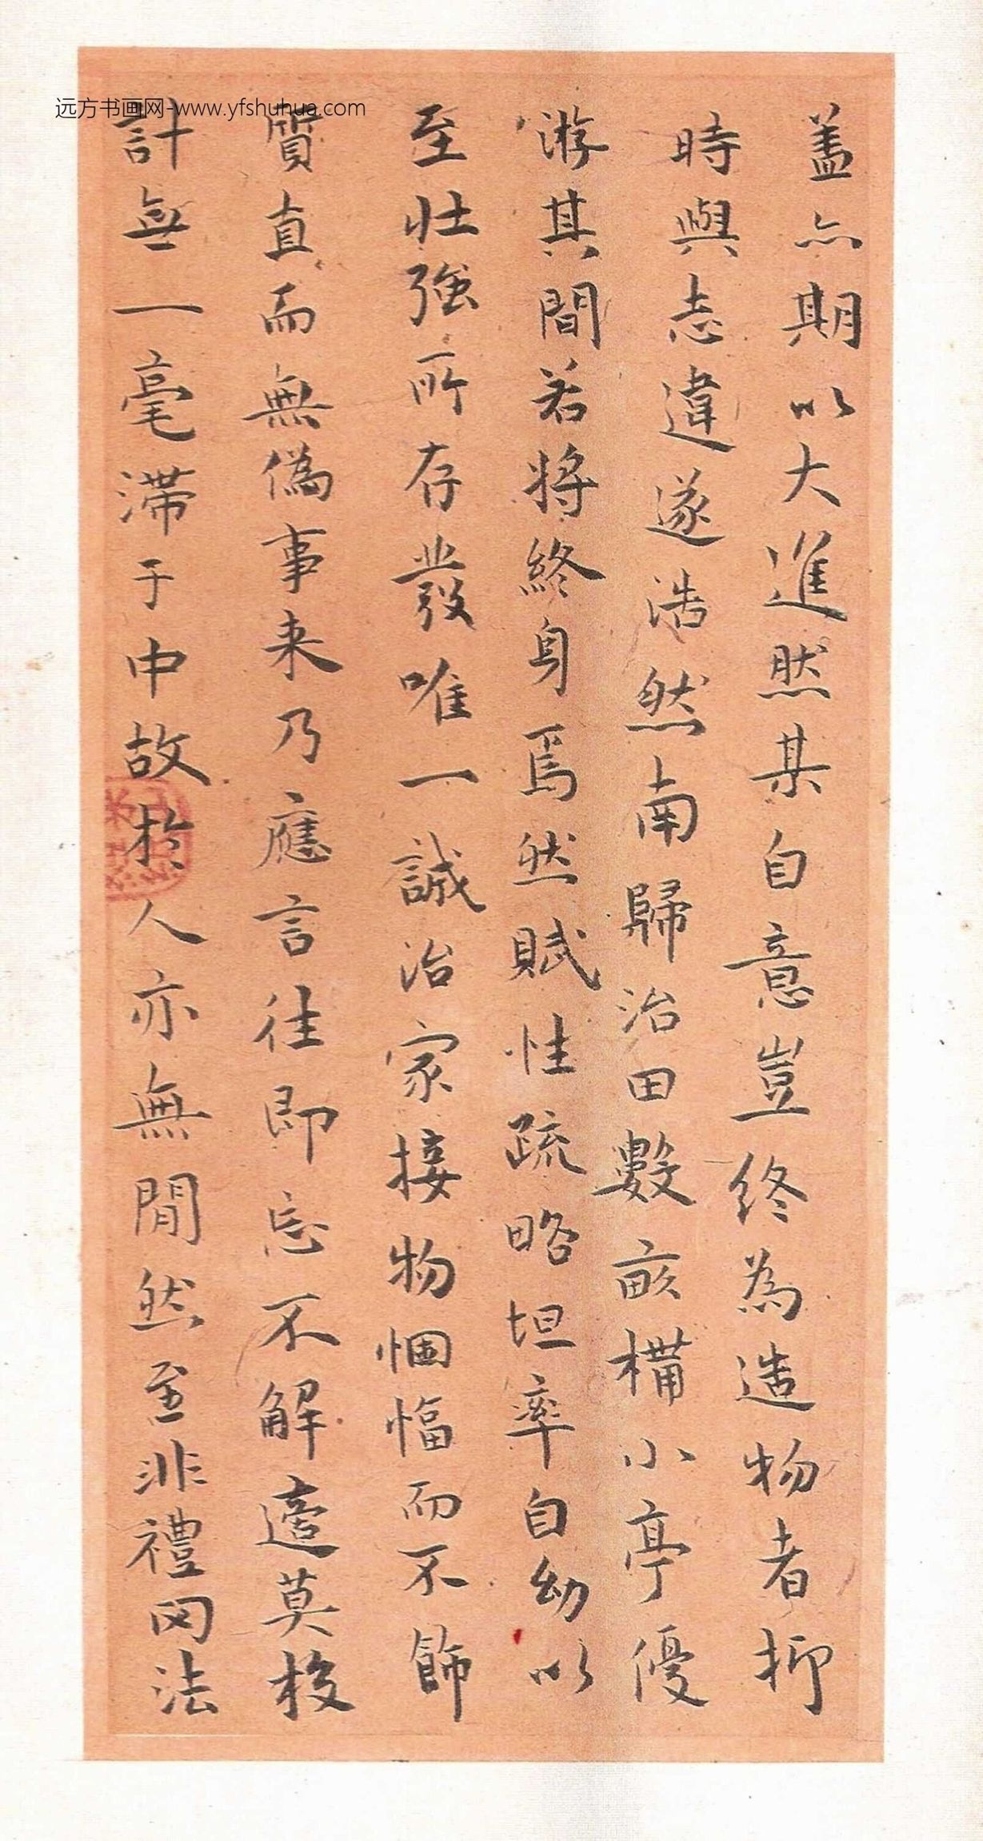 远方书画网-www.yfshuhua.com
盖亦期以大進然某自意豈終為造物者抑
時與志違遂浩然南歸治田數畝構小亭優
游其間若將終身焉然賦性疏略坦率自幼以
至壯強所存發唯一誠治家接物悃愊而不飾
質直而無偽事来乃應言往即忘不解適莫校
計無一毫滯于中故於人亦無間然至非禮罔法